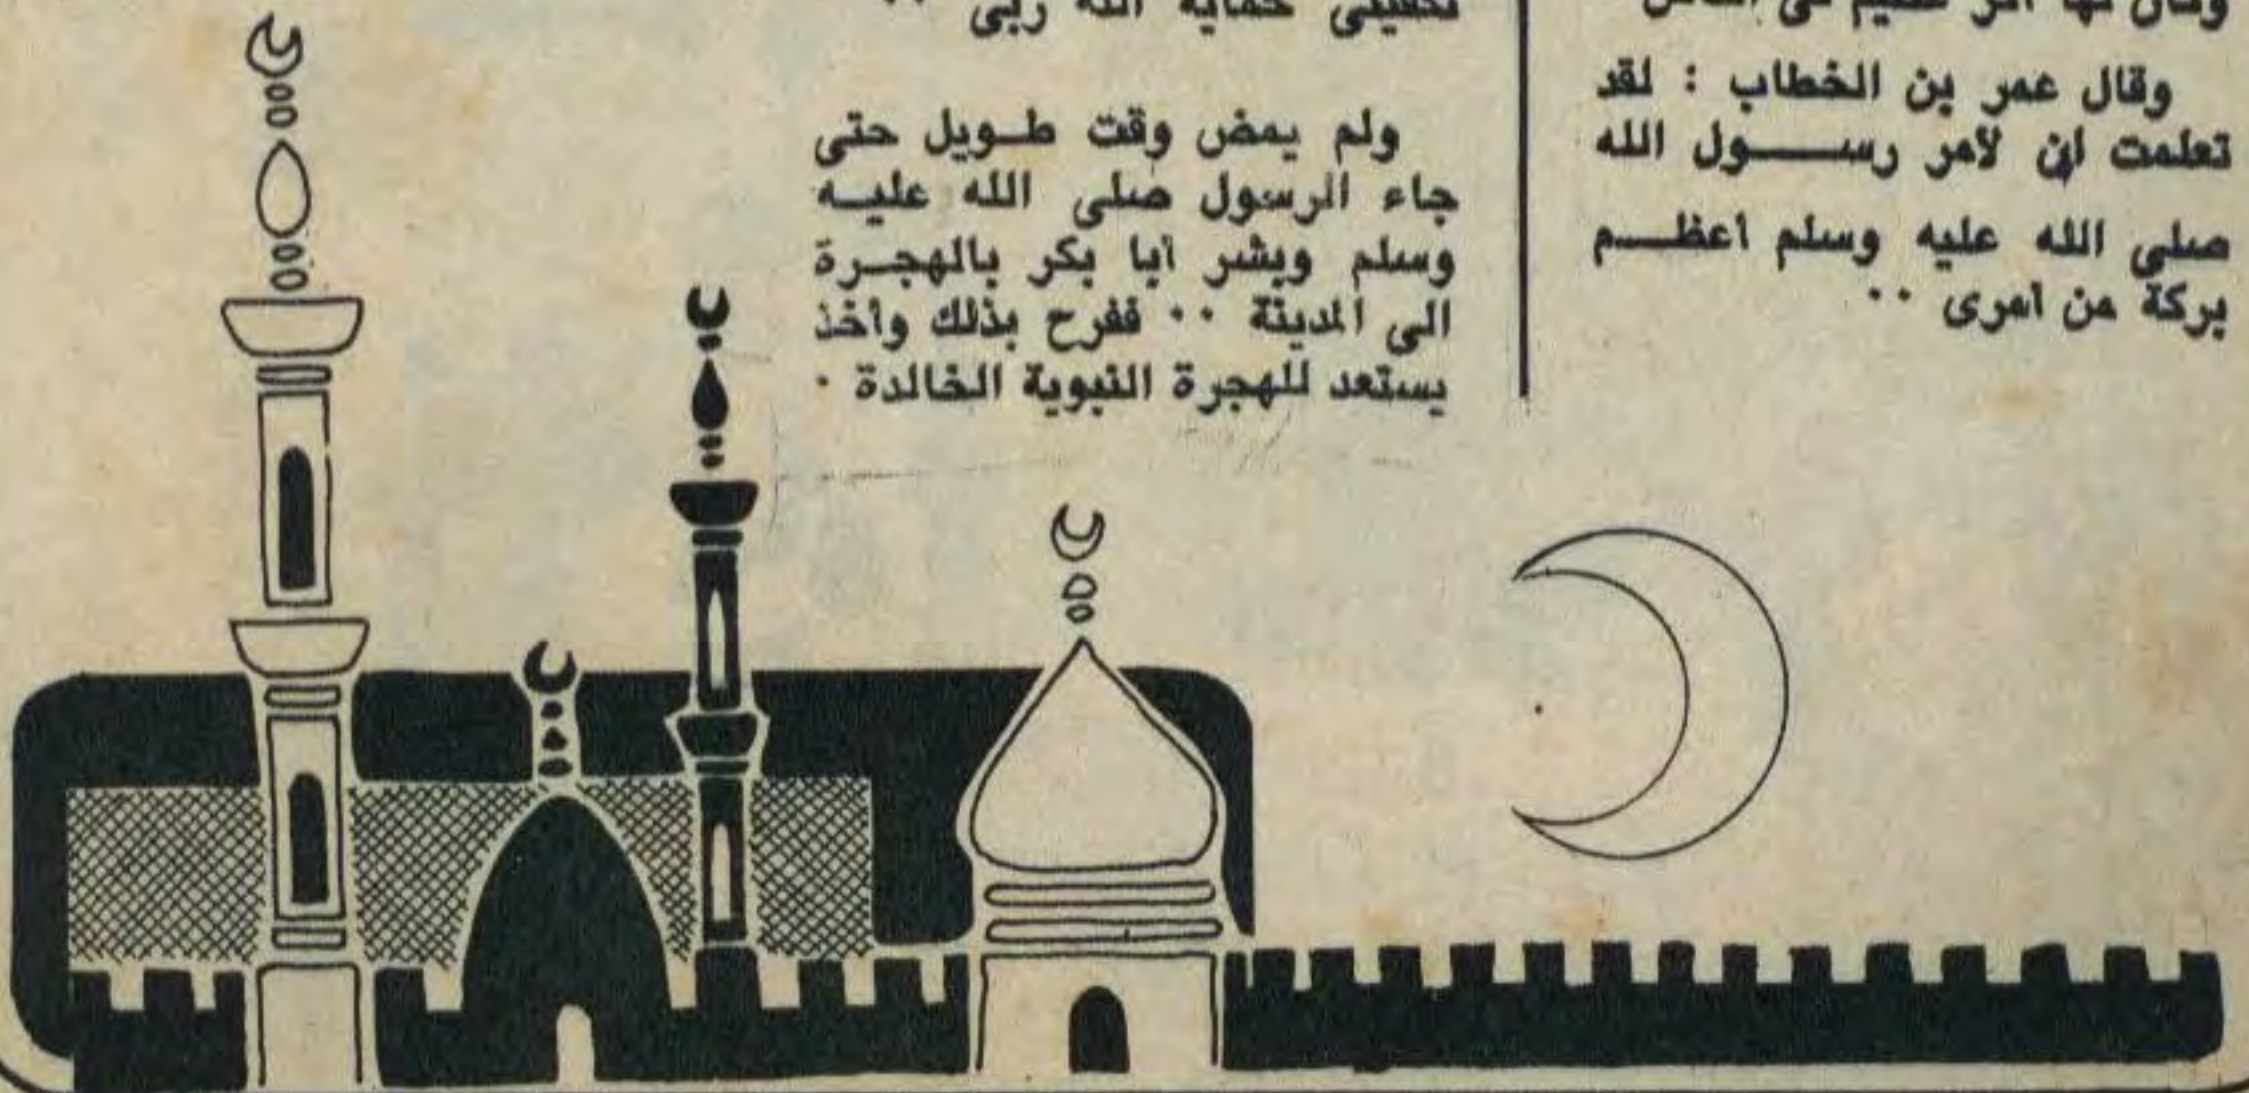 وقال عمر بن الخطاب : لقد
تعلمت أن لأمر رســـول الله
صلى الله عليه وسلم أعظــم
بركة من أمرى ٠٠
تكفينى حماية الله ربى ٠٠
ولم يمض وقت طـويل حتى
جاء الرسول صلى الله عليـه
وسلم وبشر أبا بكر بالهجـرة
الى المدينة ٠٠ ففرح بذلك وأخذ
يستعد للهجرة النبوية الخالدة ٠